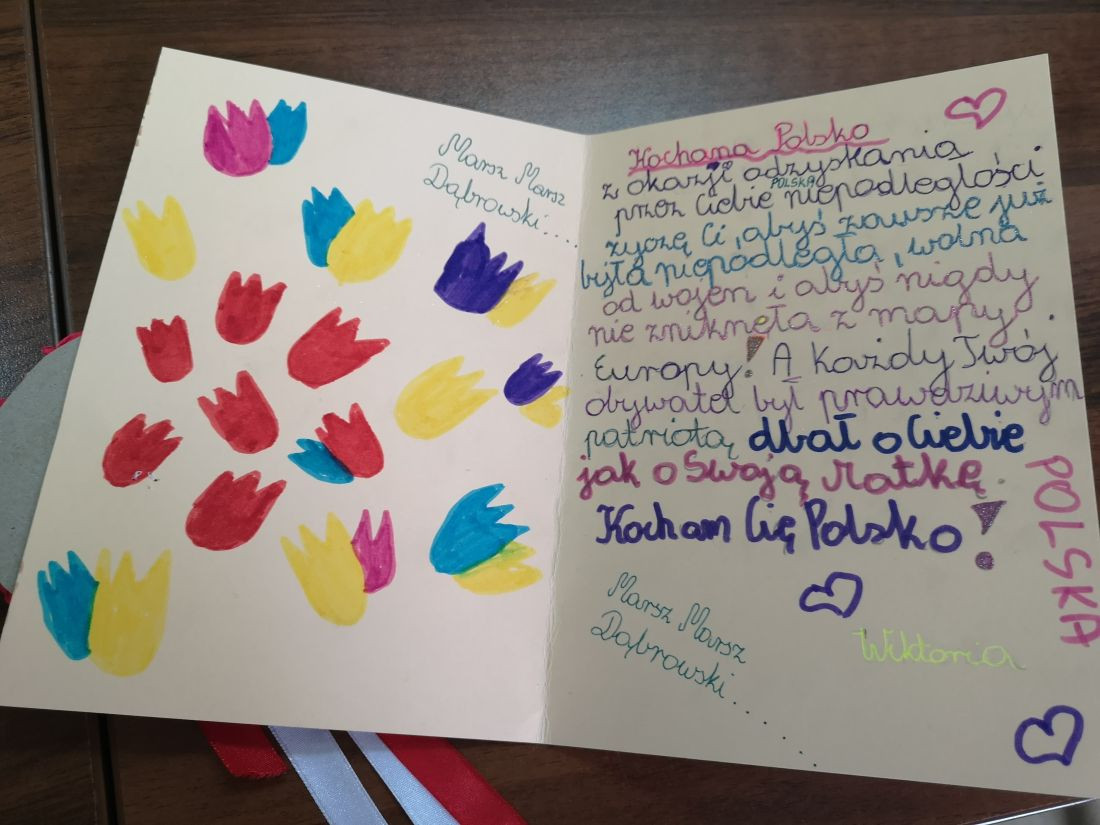 Marsz Marsz
Dąbrowski....
Kochana Polsko
z okazji odzyskania
POLSKA
przez Ciebie niepodległości
życzę Ci, abyś zawsze już
była niepodległa, wolna
od wojen i abyś nigdy
nie zniknęła z mapy
Europy! A każdy Twój
obywatel był prawdziwym
patriotą dbał o Ciebie
jak o Swoją Matkę.
Kocham Cię Polsko!
POLSKA
Marsz Marsz
Dąbrowski.....
Wiktoria